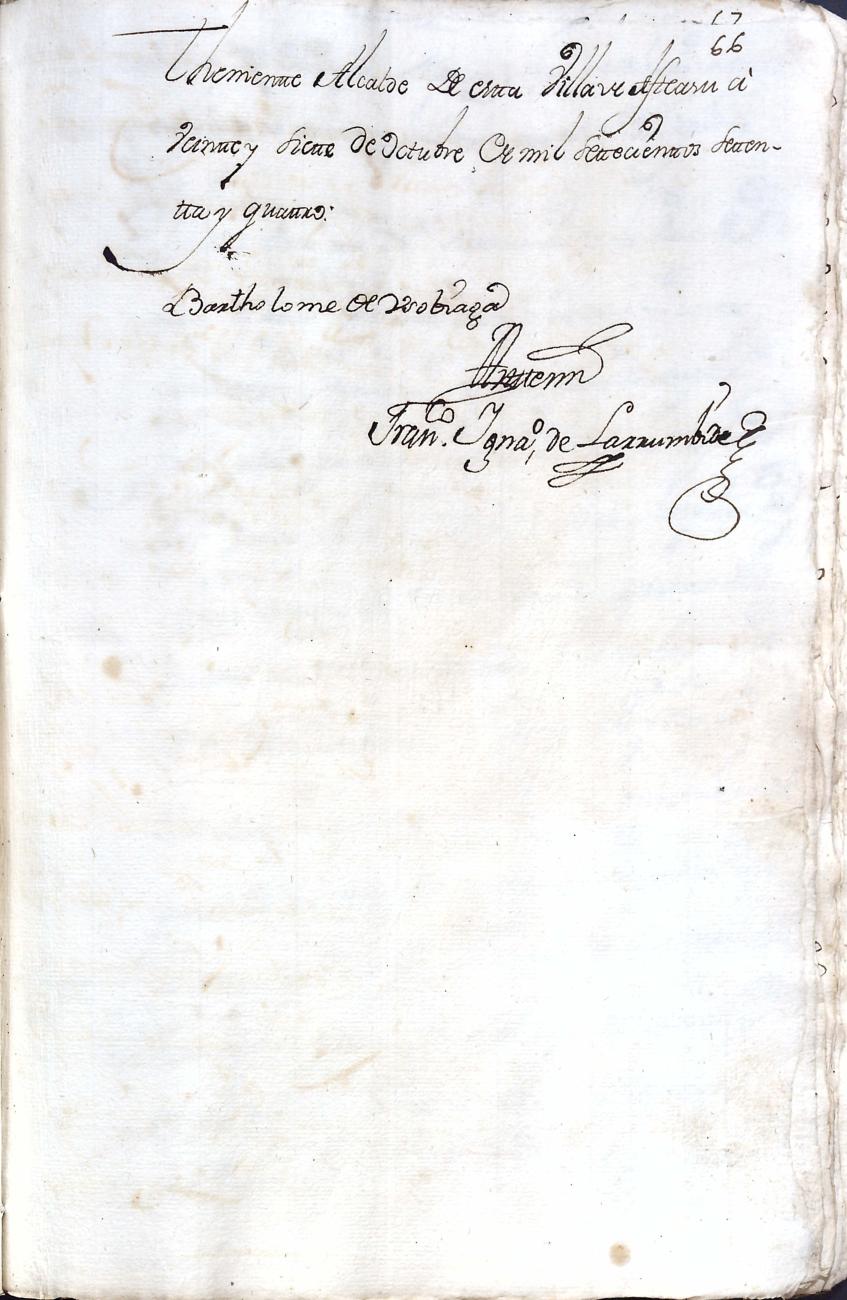 67
66
Theniente Alcalde de esta Villa de Asteasu à
Veinte y Siete de Octubre de mil Settecientos Setten-
tta y quattro.
Bartholome de
Antemi
Fran.co Ygna.o de Larrumbide